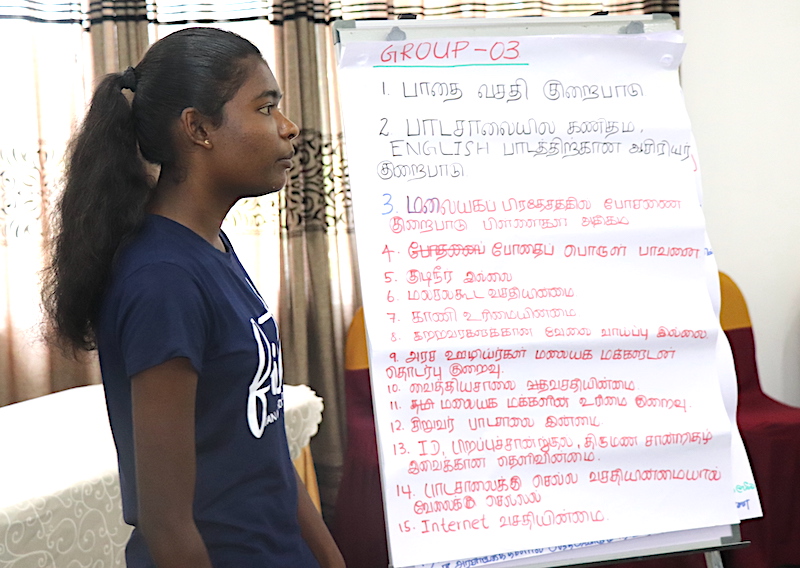 GROUP-03
1. பாதை வசதி குறைபாடு
2. பாடசாலையில் கணிதம்,
ENGLISH பாடத்திற்கான ஆசிரியர்
குறைபாடு
3. மலையகப் பிரதேசத்தில் போசணை
குறைபாடு பிள்ளைகள் அதிகம்
4. போதைப் பொருள் பாவணை
5. குடிநீர் இல்லை
6. மலசலகூட வசதியின்மை
7. காணி உரிமையின்மை
8. கற்றவர்களுக்கான வேலை வாய்ப்பு இல்லை
9. அரச ஊழியர்கள் மலையக மக்களுடன்
தொடர்பு குறைவு.
10. வைத்தியசாலை வசதியின்மை
11. மலையக மக்களின் உரிமை குறைவு.
12. சிறுவர் பாடசாலை இன்மை
13. ID, பிறப்புச்சான்றிதல், திருமண சான்றிதழ்
இவைக்கான தெளிவின்மை.
14. பாடசாலைக்கு செல்ல வசதியின்மையால்
வேலைக்கு செல்லல்
15. Internet வசதியின்மை